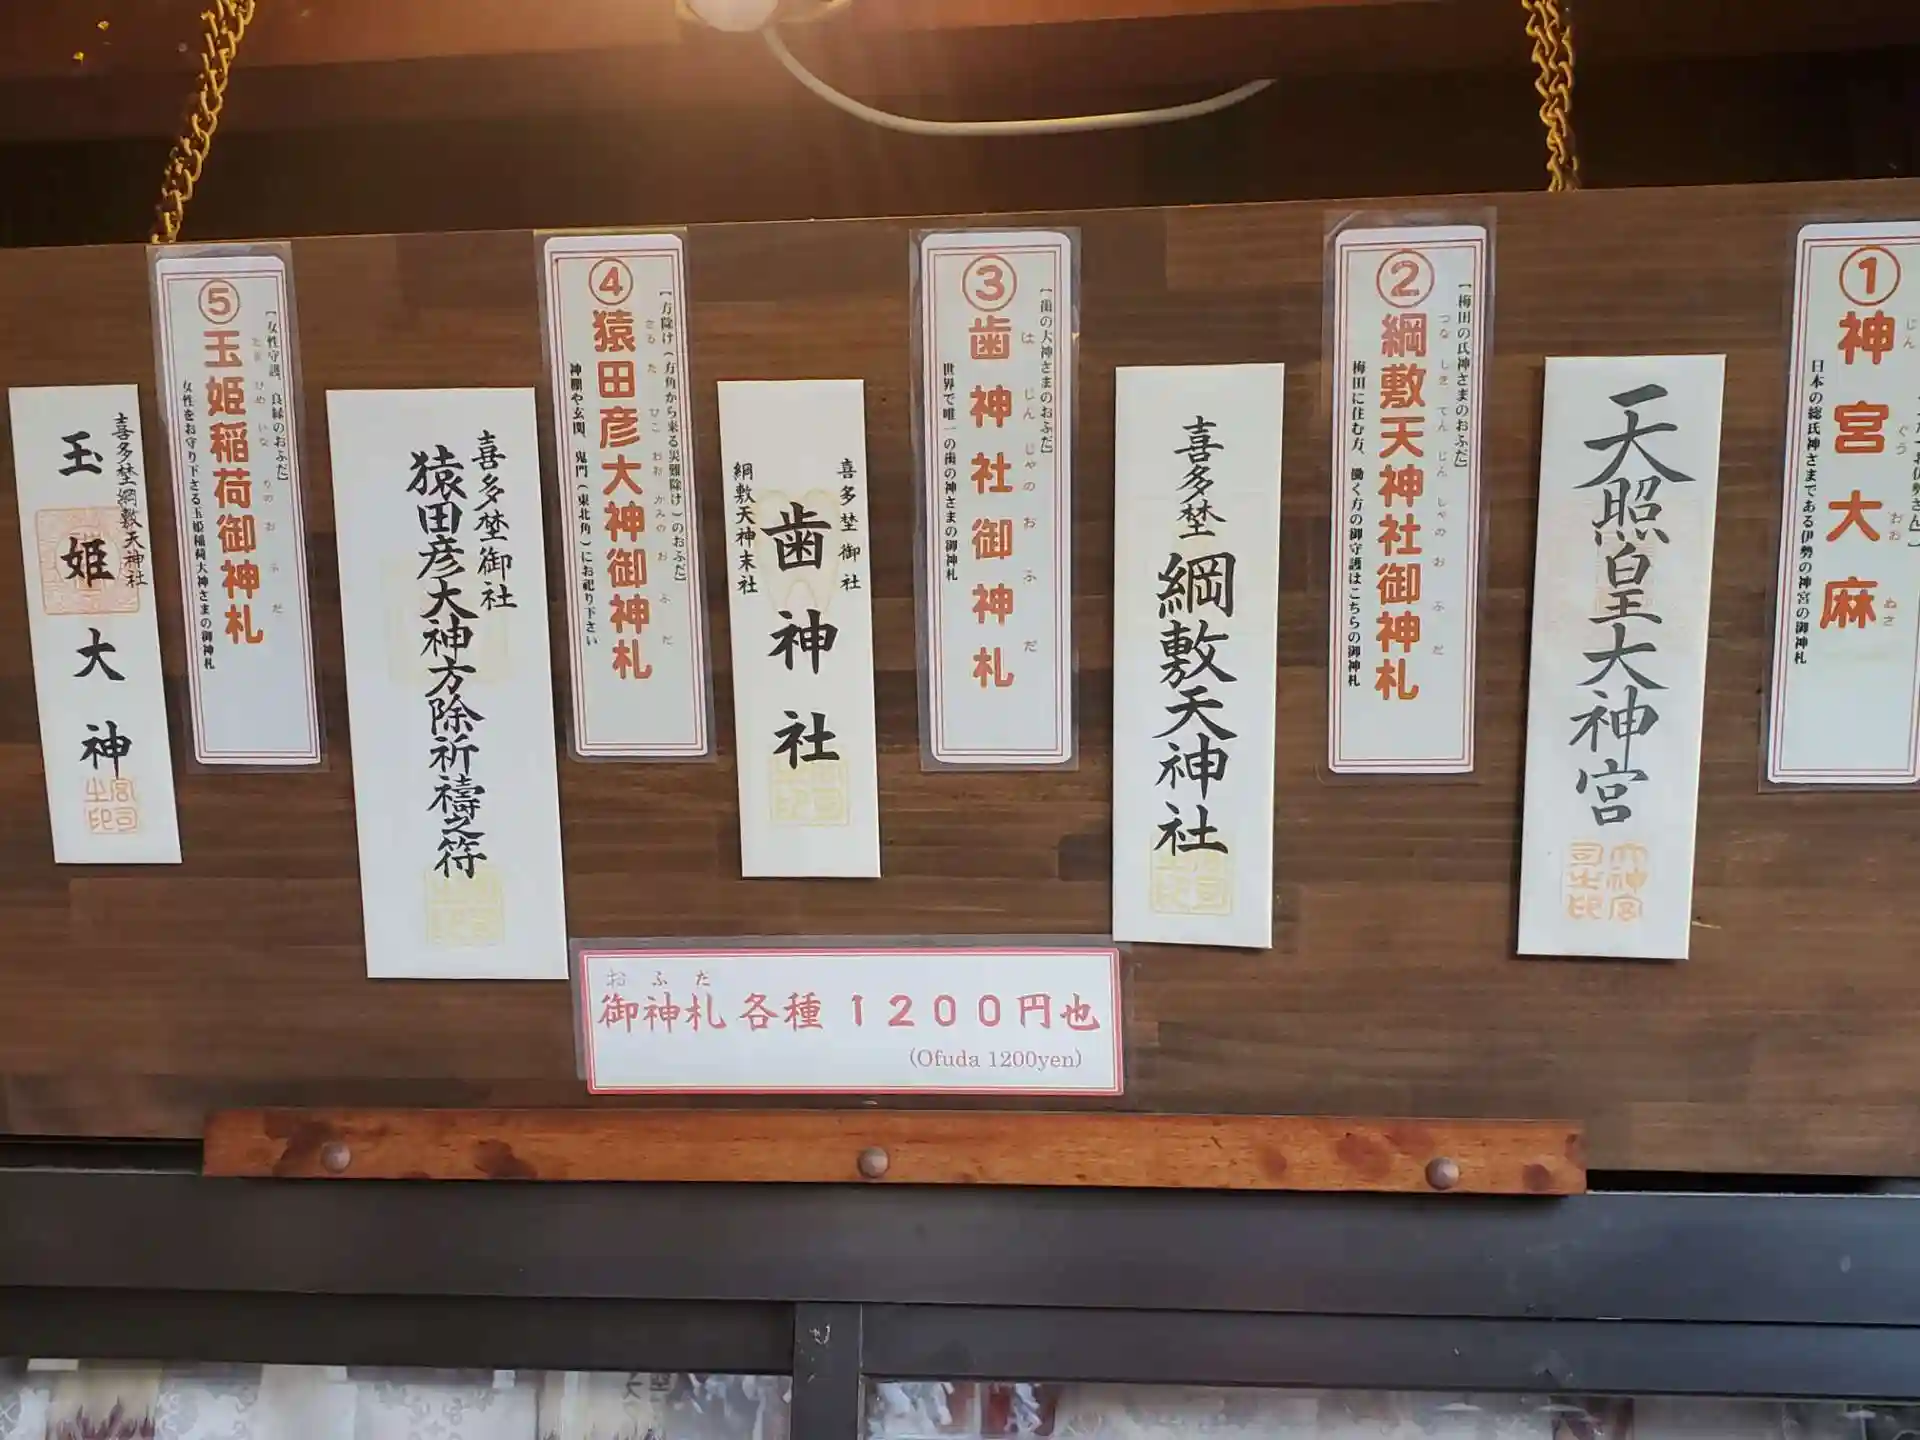 ①神宮大麻
じん ぐう おお ぬさ
日本の総氏神さまである伊勢の神宮の御神札
天照皇大神宮
②綱敷天神社御神札
つな しき てん じん しゃの お ふ だ
【梅田の氏神さまのおふだ】
梅田に住む方、働く方の御守護はこちらの御神札
喜多埜
綱敷天神社
③歯神社御神札
は じん じゃの お ふ だ
【歯の大神さまのおふだ】
世界で唯一の歯の神さまの御神札
喜多埜御社
歯神社
綱敷天神末社
④猿田彦大神御神札
さる た ひこ おお かみの お ふ だ
【方除け(方角から来る災難除け)のおふだ】
神棚や玄関、鬼門(東北角)にお祀り下さい
喜多埜御社
猿田彦大神方除祈禱之符
⑤玉姫稲荷御神札
たま ひめ いな りの お ふ だ
【女性守護、良縁のおふだ】
女性をお守り下さる玉姫稲荷大神さまの御神札
喜多埜綱敷天神社
玉姫大神
宮司之印
おふだ
御神札 各種 1200円也
(Ofuda 1200yen)